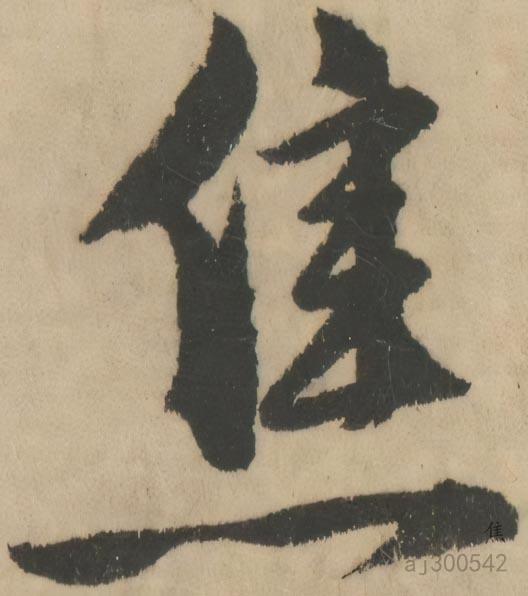 焦
焦
aj300542